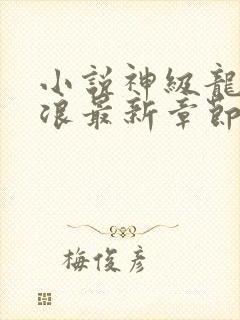 小說神級龍
浪最新章節
梅俊彥